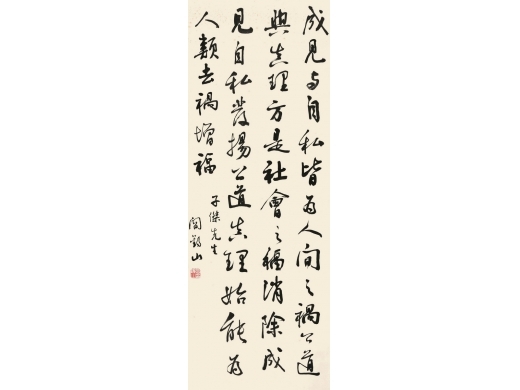 成見与自私皆为人间之禍公道
與真理方是社會之福消除成
見自私發揚公道真理始能为
人類去禍增福
子傑先生
閻錫山